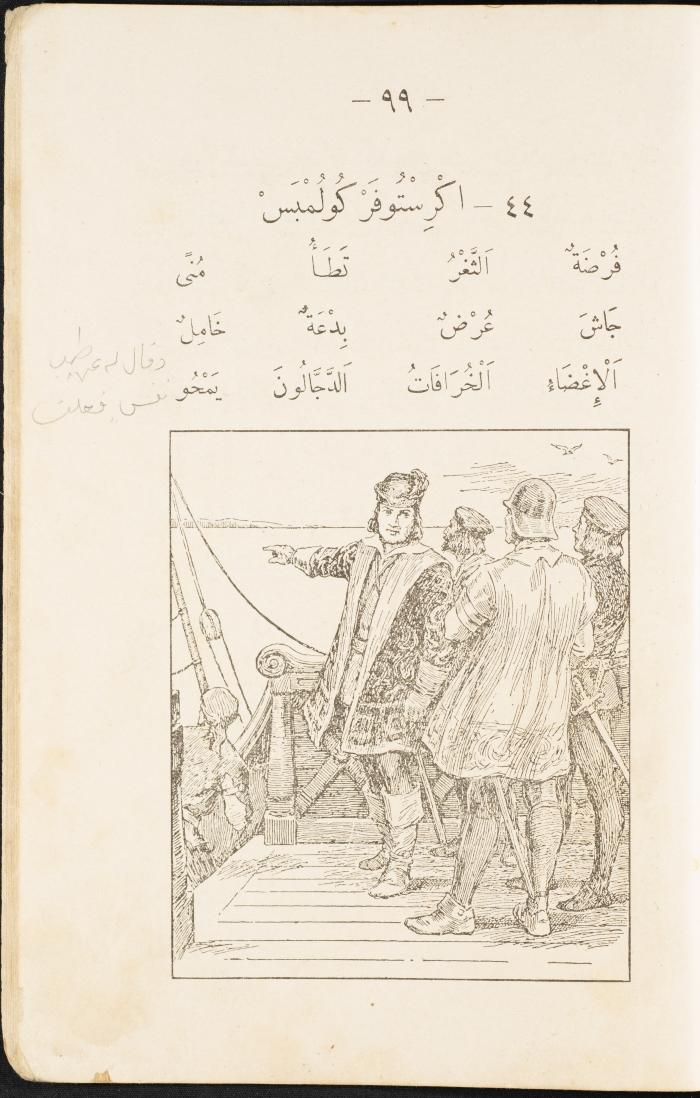 – ٩٩ –
٤٤ – اكْرِسْتُوفَرْ كُولُمْبَسْ
فُرْضَةٌ اَلثَّغْرُ تَطَأُ مُنىً
جَاشَ عُرْضٌ بِدْعَةٌ خَامِلٌ
اَلْإِغْضَاءُ اَلْخُرَافَاتُ اَلدَّجَّالُونَ يَمْحُو
وقال له عن
نفس فعلت